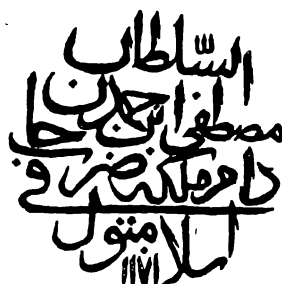 السلطان
مصطفى ابن احمد خان
دام ملكه ضرب فى
اسلامبول
١١٧١